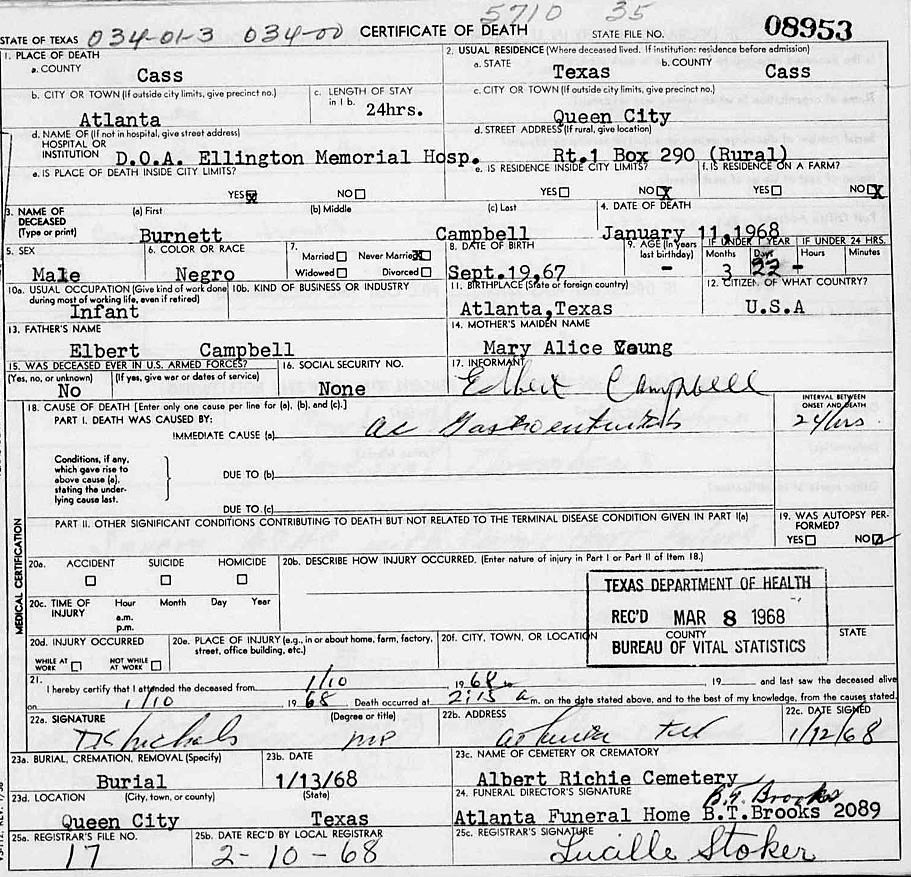 5710 35
STATE OF TEXAS 034-01-3 034-00 CERTIFICATE OF DEATH STATE FILE NO. 08953
1. PLACE OF DEATH
a. COUNTY
Cass
2. USUAL RESIDENCE (Where deceased lived. If institution: residence before admission)
a. STATE b. COUNTY
Texas Cass
b. CITY OR TOWN (If outside city limits, give precinct no.)
Atlanta
c. LENGTH OF STAY
in 1 b. 24hrs.
c. CITY OR TOWN (If outside city limits, give precinct no.)
Queen City
d. NAME OF (If not in hospital, give street address)
HOSPITAL OR
INSTITUTION D.O.A. Ellington Memorial Hosp.
d. STREET ADDRESS (If rural, give location)
Rt.1 Box 290 (Rural)
e. IS PLACE OF DEATH INSIDE CITY LIMITS?
YES NO
e. IS RESIDENCE INSIDE CITY LIMITS?
YES NO X
f. IS RESIDENCE ON A FARM?
YES NO X
3. NAME OF
DECEASED
(Type or print)
(a) First (b) Middle (c) Last
Burnett Campbell
4. DATE OF DEATH
January 11,1968
5. SEX
Male
6. COLOR OR RACE
Negro
7.
Married Never Married
Widowed Divorced
8. DATE OF BIRTH
Sept.19,67
9. AGE (In years
last birthday)
-
IF UNDER 1 YEAR
Months Days
3 22 -
IF UNDER 24 HRS.
Hours Minutes
10a. USUAL OCCUPATION (Give kind of work done
during most of working life, even if retired)
Infant
10b. KIND OF BUSINESS OR INDUSTRY
11. BIRTHPLACE (State or foreign country)
Atlanta,Texas
12. CITIZEN OF WHAT COUNTRY?
U.S.A
13. FATHER'S NAME
Elbert Campbell
14. MOTHER'S MAIDEN NAME
Mary Alice Young
15. WAS DECEASED EVER IN U.S. ARMED FORCES?
(Yes, no, or unknown) (If yes, give war or dates of service)
No
16. SOCIAL SECURITY NO.
None
17. INFORMANT
Elbert Campbell
18. CAUSE OF DEATH [Enter only one cause per line for (a), (b), and (c).]
PART I. DEATH WAS CAUSED BY:
IMMEDIATE CAUSE (a) ac Gastroenteritis
INTERVAL BETWEEN
ONSET AND DEATH
24 hrs
Conditions, if any,
which gave rise to
above cause (a),
stating the under-
lying cause last.
DUE TO (b)
DUE TO (c)
PART II. OTHER SIGNIFICANT CONDITIONS CONTRIBUTING TO DEATH BUT NOT RELATED TO THE TERMINAL DISEASE CONDITION GIVEN IN PART I(a)
19. WAS AUTOPSY PER-
FORMED?
YES NO
MEDICAL CERTIFICATION
20a. ACCIDENT SUICIDE HOMICIDE
20b. DESCRIBE HOW INJURY OCCURRED. (Enter nature of injury in Part I or Part II of Item 18.)
20c. TIME OF
INJURY
Hour Month Day Year
a.m.
p.m.
TEXAS DEPARTMENT OF HEALTH
REC'D MAR 8 1968
BUREAU OF VITAL STATISTICS
20d. INJURY OCCURRED
WHILE AT
WORK
NOT WHILE
AT WORK
20e. PLACE OF INJURY (e.g., in or about home, farm, factory,
street, office building, etc.)
20f. CITY, TOWN, OR LOCATION COUNTY STATE
21.
I hereby certify that I attended the deceased from 1/10, 1968, 19 and last saw the deceased alive
on 1/10 1968 Death occurred at 2:15 a m. on the date stated above, and to the best of my knowledge, from the causes stated.
22a. SIGNATURE (Degree or title)
Nichols MD
22b. ADDRESS
22c. DATE SIGNED
1/12/68
23a. BURIAL, CREMATION, REMOVAL (Specify)
Burial
23b. DATE
1/13/68
23c. NAME OF CEMETERY OR CREMATORY
Albert Richie Cemetery
23d. LOCATION (City, town, or county) (State)
Queen City Texas
24. FUNERAL DIRECTOR'S SIGNATURE
B.T. Brooks
Atlanta Funeral Home B.T.Brooks 2089
25a. REGISTRAR'S FILE NO.
17
25b. DATE REC'D BY LOCAL REGISTRAR
2-10-68
25c. REGISTRAR'S SIGNATURE
Lucille Stoker